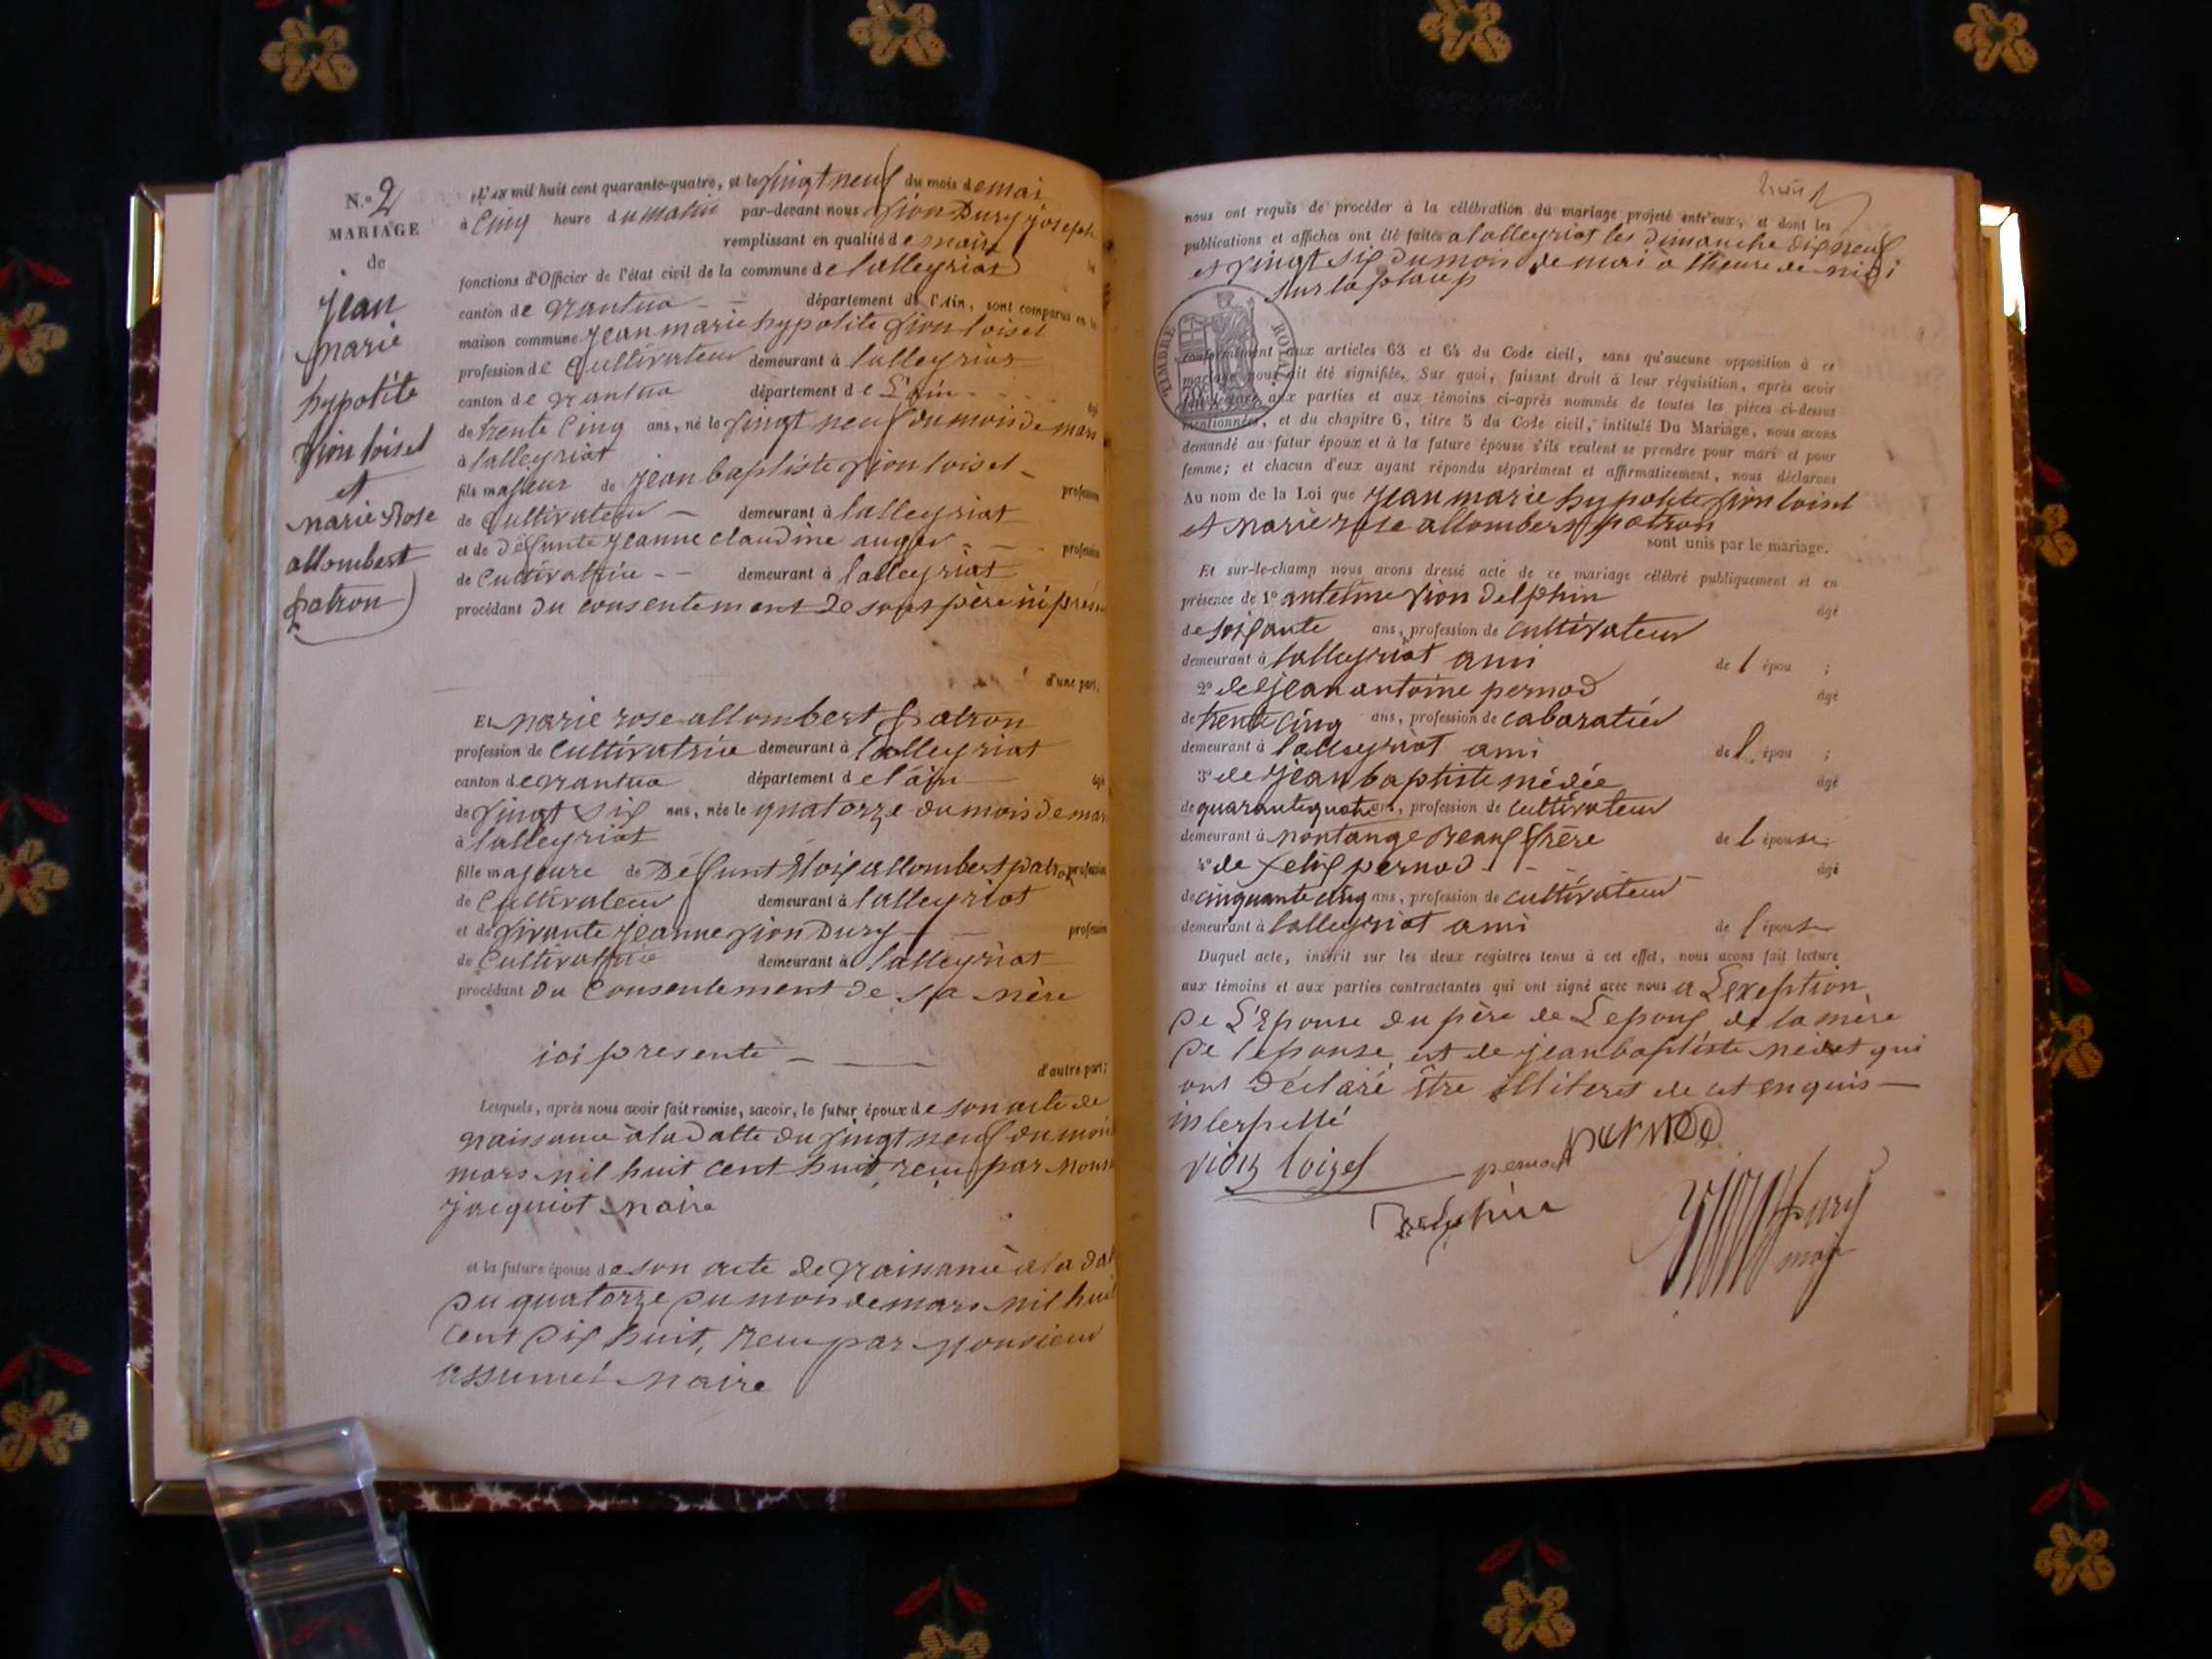 N.o 2
MARIAGE
de
jean
marie
hypolite
vion loisel
et
marie Rose
allombert
patron
L'AN mil huit cent quarante-quatre, et le vingt neuf du mois de mai
à cinq heure du matin par-devant nous vion Dury joseph
remplissant en qualité de maire les
fonctions d'Officier de l'état civil de la commune de lalleyriat
canton de nantua département de l'Ain, sont comparus en la
maison commune jean marie hypolite vion loisel
profession de cultivateur demeurant à lalleyriat
canton de nantua département de L'ain âgé
de trente cinq ans, né le vingt neuf du mois de mars
à lalleyriat
fils majeur de jean baptiste vion loisel profession
de cultivateur demeurant à lalleyriat
et de Défunte jeanne claudine auger profession
de cultivatrice demeurant à lalleyriat
procédant du consentement de sont père ici
d'une part;
Et marie rose allombert patron
profession de cultivatrice demeurant à lalleyriat
canton de nantua département de l'ain âgée
de vingt six ans, née le quatorze du mois de mars
à lalleyriat
fille majeure de Défunt allombert patron profession
de cultivateur demeurant à lalleyriat
et de vivante jeanne vion Dury profession
de cultivatrice demeurant à lalleyriat
procédant du consentement de sa mère
ici presente
d'autre part;
Lesquels, après nous avoir fait remise, savoir, le futur époux de son acte de
naissance à la datte du vingt neuf du mois
mars mil huit cent huit, reçu par
jacquiot maire
et la future épouse de son acte de naissance à la dat
du quatorze du mois de mars mil huit
cent dix huit, reçu par monsieur
maire
nous ont requis de procéder à la célébration du mariage projeté entr'eux, et dont les
publications et affiches ont été faites a lalleyriat les dimanche dix neuf
et vingt six du mois de mai à l'heure de midi
sur la place
TIMBRE ROYAL
conformément aux articles 63 et 64 du Code civil, sans qu'aucune opposition à ce
mariage nous ait été signifiée. Sur quoi, faisant droit à leur réquisition, après avoir
fait lecture aux parties et aux témoins ci-après nommés de toutes les pièces ci-dessus
mentionnées, et du chapitre 6, titre 5 du Code civil, intitulé Du Mariage, nous avons
demandé au futur époux et à la future épouse s'ils veulent se prendre pour mari et pour
femme; et chacun d'eux ayant répondu séparément et affirmativement, nous déclarons
Au nom de la Loi que jean marie hypolite vion loisel
et marie rose allombert patron
sont unis par le mariage.
Et sur-le-champ nous avons dressé acte de ce mariage célébré publiquement et en
présence de 1° antelme vion delphin âgé
de soixante ans, profession de cultivateur
demeurant à lalleyriat ami de l épou ;
2° de jean antoine pernod âgé
de trente cinq ans, profession de cabaratier
demeurant à lalleyriat ami de l épou ;
3° de jean baptiste médée âgé
de quarante quatre ans, profession de cultivateur
demeurant à montange Beauf frère de l épouse;
4° de felix pernod âgé
de cinquante cinq ans, profession de cultivateur
demeurant à lalleyriat ami de l épouse
Duquel acte, inscrit sur les deux registres tenus à cet effet, nous avons fait lecture
aux témoins et aux parties contractantes qui ont signé avec nous a Lexeption
de L'Epouse du père de Lepoux de la mère
de lepouse et de jean baptiste médet qui
ont déclaré être illiteret de cet enquis
interpellé
vion loizel
pernod
pernod
Delphin
Dury
maire